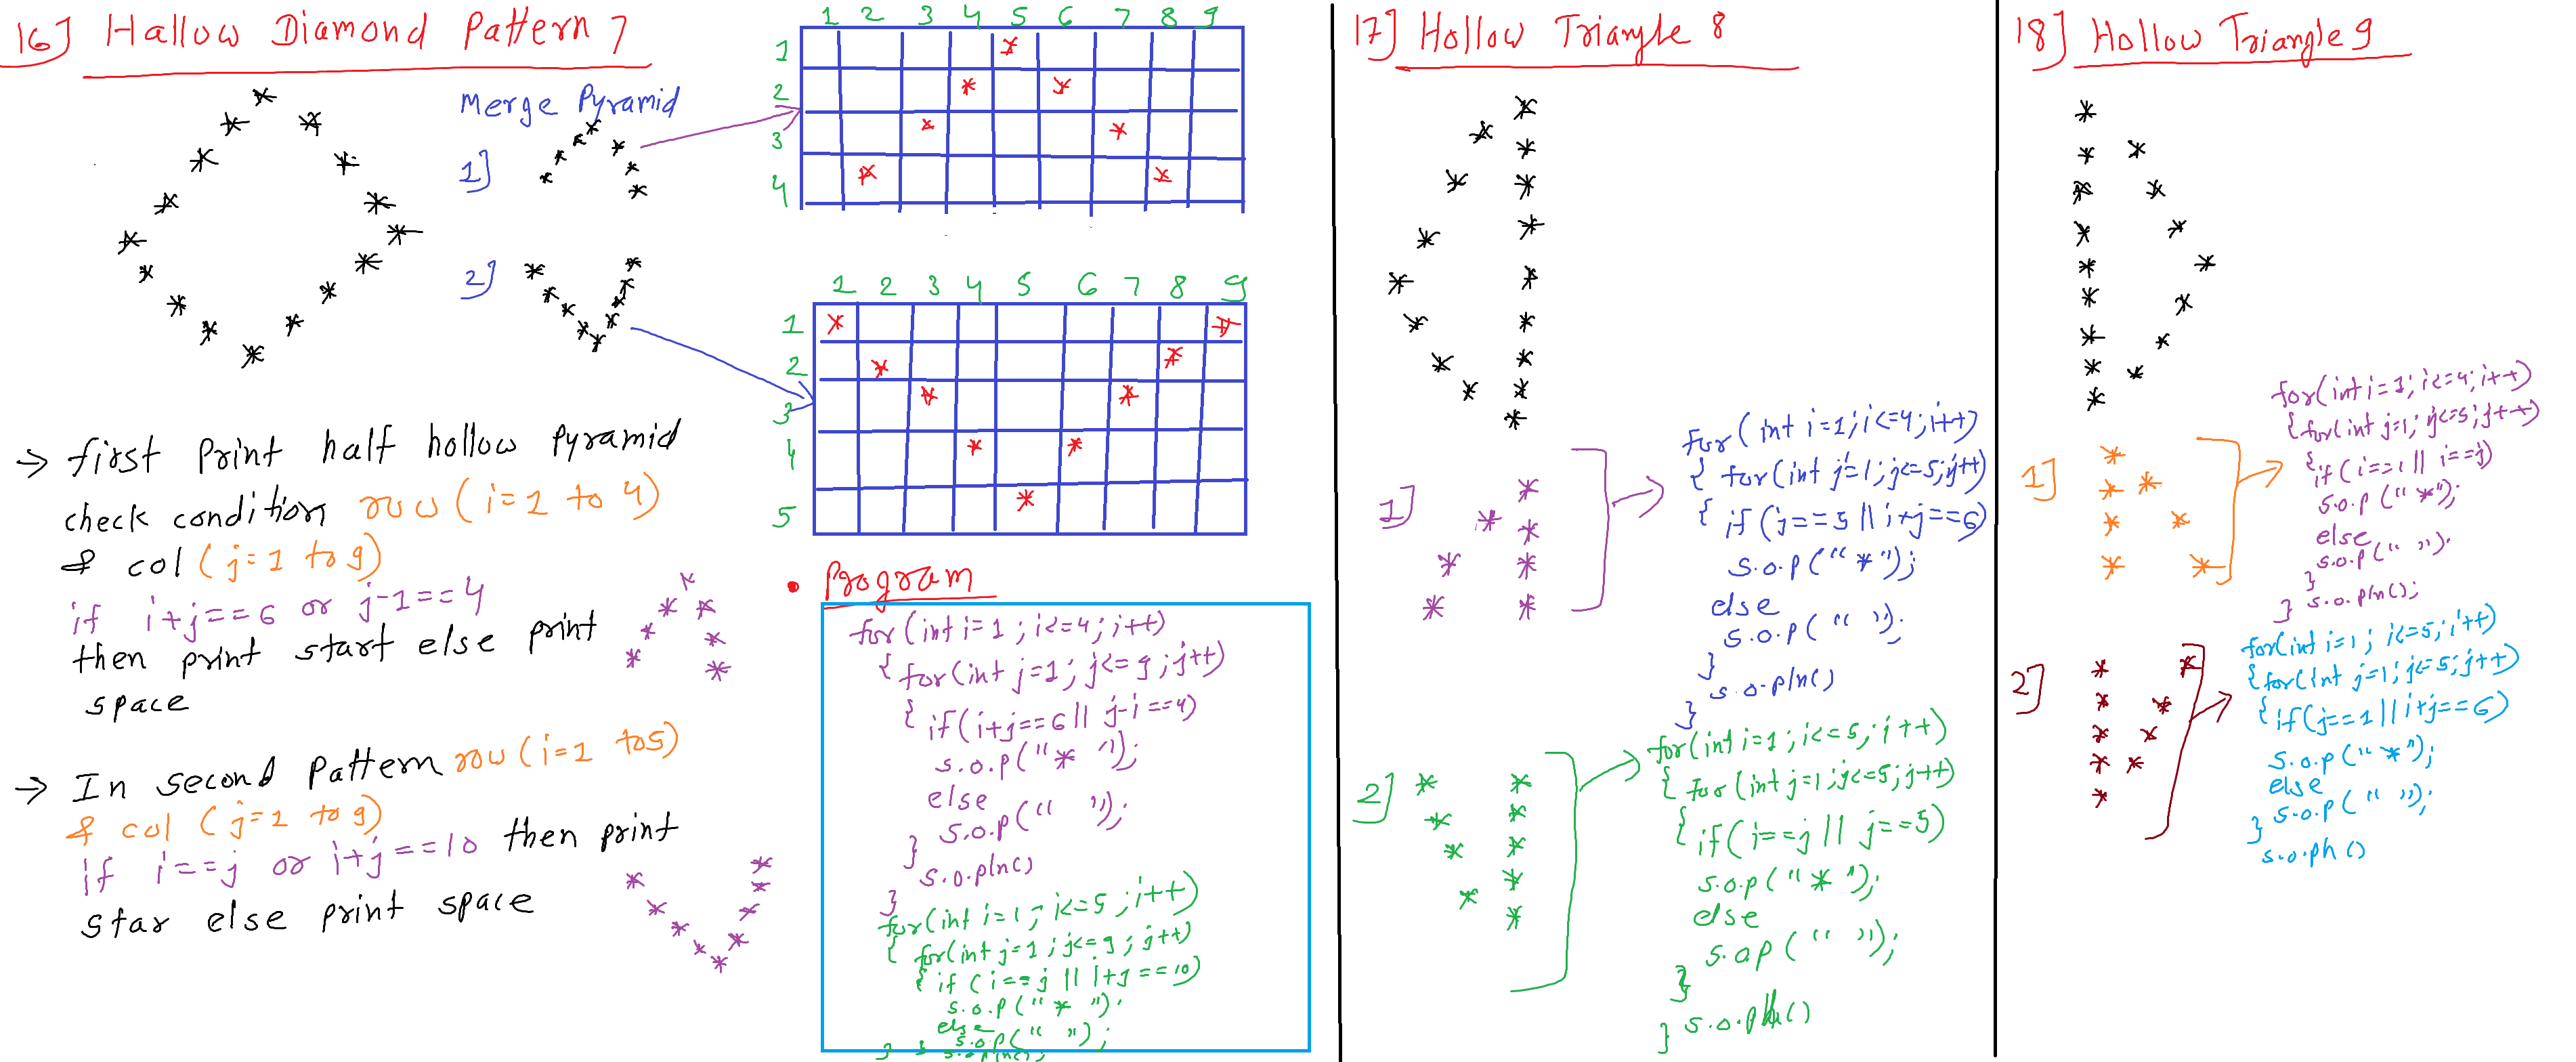 16] Hallow Diamond Pattern 7
Merge Pyramid
1]
2]
1 2 3 4 5 6 7 8 9
1
2
3
4
1 2 3 4 5 6 7 8 9
1
2
3
4
5
→ first Print half hollow Pyramid
check condition row (i=1 to 4)
& col (j=1 to 9)
if i+j==6 or j-1==4
then print start else print
space
→ In second Pattern row (i=1 to 5)
& col (j=1 to 9)
if i==j or i+j==10 then print
star else print space
• Program
for(int i=1; i<=4; i++)
{ for(int j=1; j<=9; j++)
{ if(i+j==6 || j-i==4)
s.o.p("* ");
else
s.o.p("  ");
}
s.o.pln()
}
for(int i=1; i<=5; i++)
{ for(int j=1; j<=9; j++)
{ if (i==j || i+j==10)
s.o.p("* ");
else
s.o.p("  ");
} } s.o.pln();
17] Hollow Triangle 8
1]
for(int i=1; i<=4; i++)
{ for(int j=1; j<=5; j++)
{ if (j==5 || i+j==6)
s.o.p("*");
else
s.o.p(" ");
}
s.o.pln()
}
2]
for(int i=1; i<=5; i++)
{ for(int j=1; j<=5; j++)
{ if(i==j || j==5)
s.o.p("*");
else
s.o.p(" ");
}
} s.o.pln()
18] Hollow Triangle 9
1]
for(int i=1; i<=4; i++)
{ for(int j=1; j<=5; j++)
{ if(i==1 || i==j)
s.o.p("*");
else
s.o.p(" ");
}
} s.o.pln();
2]
for(int i=1; i<=5; i++)
{ for(int j=1; j<=5; j++)
{ if(j==1 || i+j==6)
s.o.p("*");
else
s.o.p(" ");
}
s.o.pln()